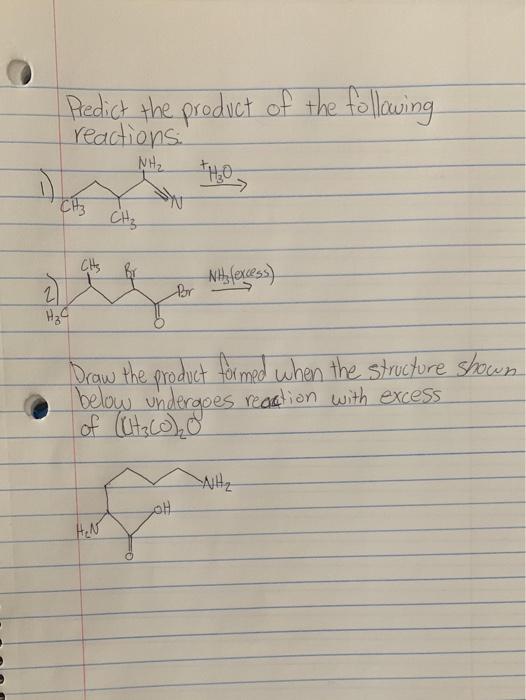 Predict the product of the following
reactions:
1)
NH2
+H3O
CH3
CH3
N
2)
CH3
Br
NH3(excess)
Br
H3C
O
Draw the product formed when the structure shown
below undergoes reaction with excess
of (CH3CO)2O
NH2
OH
H2N
O